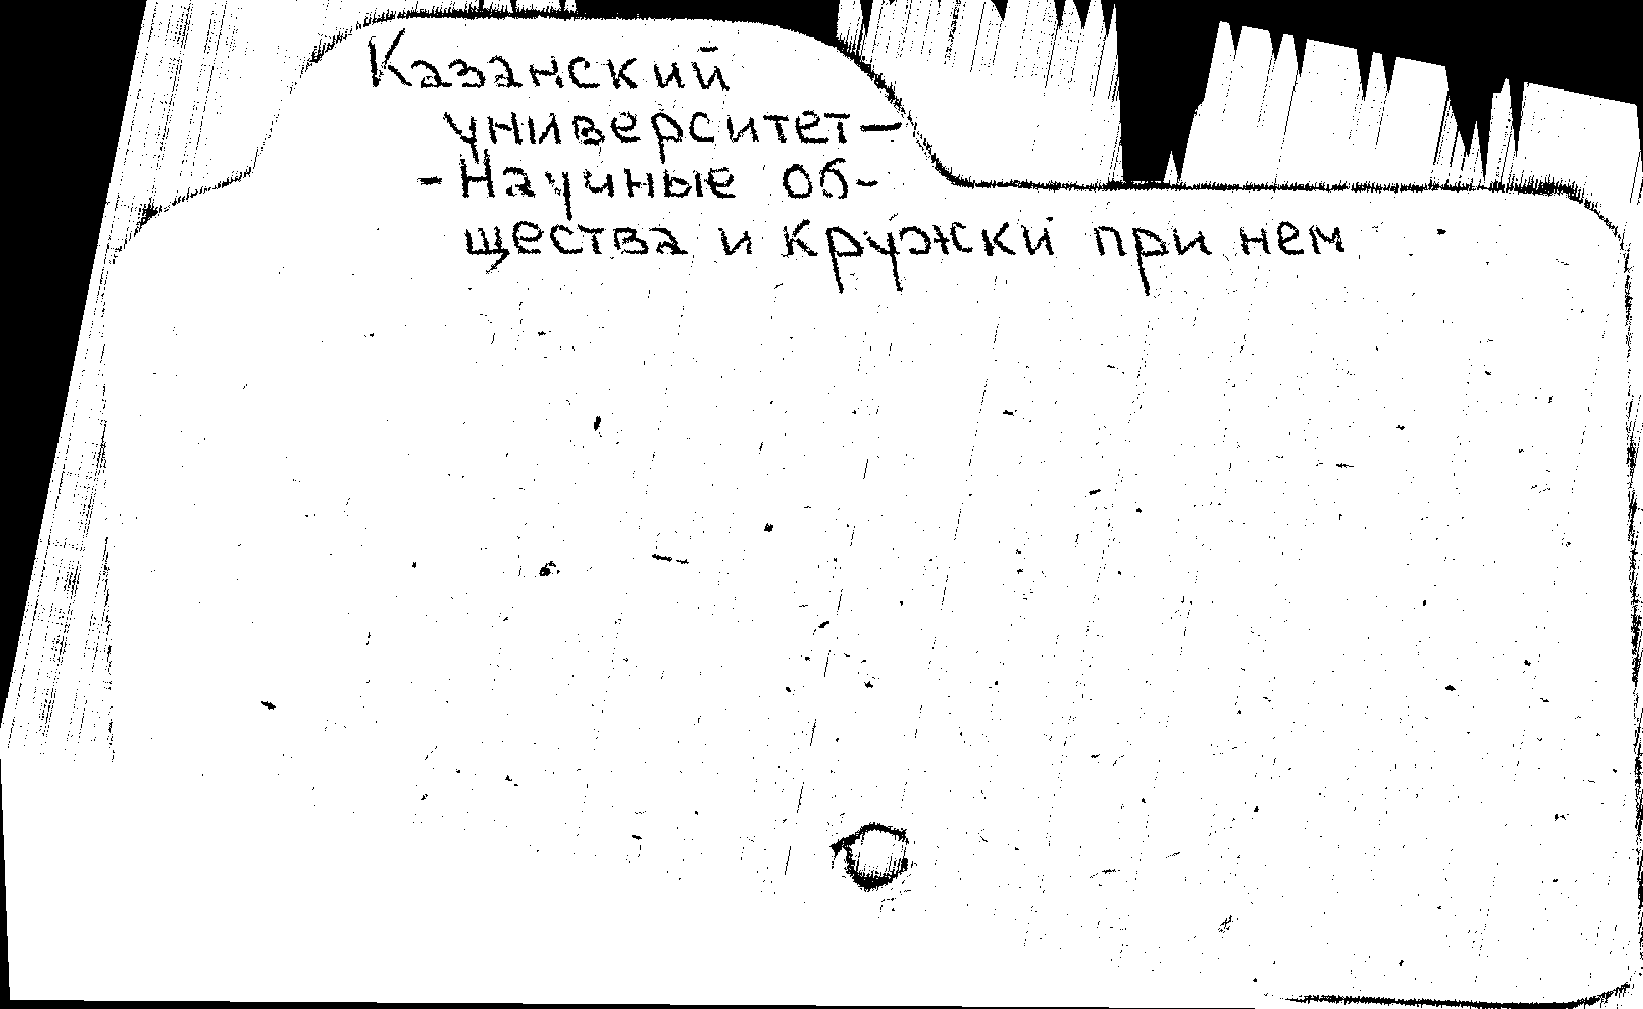 Казанский
университет—
-Научные об-
щества и кружки при нем